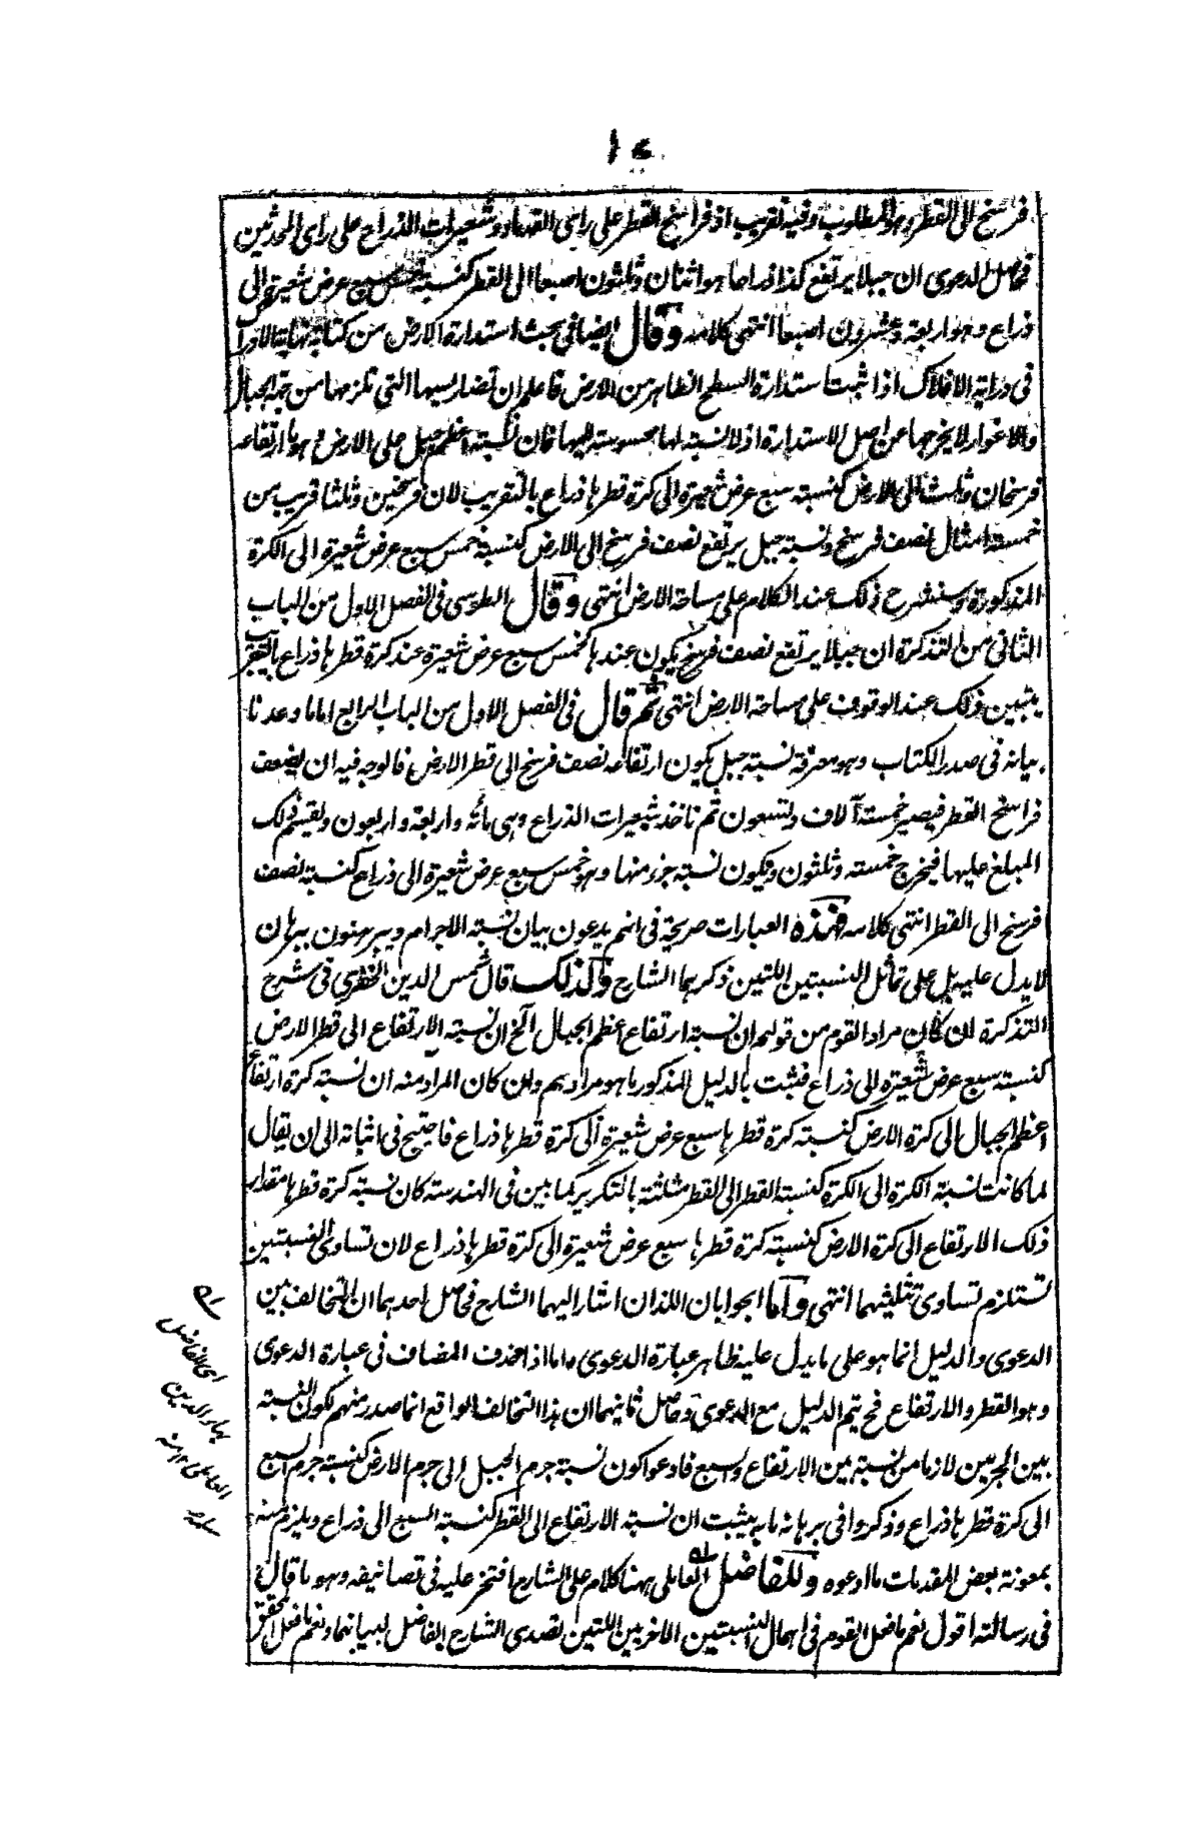 ١٤
فرسخ الى القطر وهو المطلوب وفيه تقريب اذ فراسخ القطر على راى القدماء وشعيرات الذراع على راى المحدثين
فحاصل الدعوى ان جبلا يرتفع كذا ذراعا هو اثنان وثلثون اصبعا الى القطر كنسبة خمس سبع عرض شعيرة الى
ذراع وهو اربعة وعشرون اصبعا انتهى كلامه وقال ايضا فى بحث استدارة الارض من كتابه نهاية الادراك
فى دراية الافلاك اذا ثبت استدارة السطح الظاهر من الارض فاعلم ان تضاريسها التى تلزمها من جهة الجبال
والاغوار لا يخرجها عن اصل الاستدارة اذ لا نسبة لها محسوسة اليها فان نسبة اعظم جبل على الارض وهو ما ارتفاعه
فرسخان وثلث الى الارض كنسبة سبع عرض شعيرة الى كرة قطرها ذراع بالتقريب لان فرسخين وثلثا قريب من
خمسة امثال نصف فرسخ ونسبة جبل يرتفع نصف فرسخ الى الارض كنسبة خمس سبع عرض شعيرة الى الكرة
المذكورة وسنشرح ذلك عند الكلام على مساحة الارض انتهى وقال الطوسى فى الفصل الاول من الباب
الثانى من التذكرة ان جبلا يرتفع نصف فرسخ يكون عندها كخمس سبع عرض شعيرة عند كرة قطرها ذراع بالتقريب
يتبين ذلك عند الوقوف على مساحة الارض انتهى ثم قال فى الفصل الاول من الباب الرابع اما ما وعدنا
بيانه فى صدر الكتاب وهو معرفة نسبة جبل يكون ارتفاعه نصف فرسخ الى قطر الارض فالوجه فيه ان يضعف
فراسخ القطر فيصير خمسة آلاف وتسعون ثم ناخذ شعيرات الذراع وهى مائة واربعة واربعون ونقسم ذلك
المبلغ عليها فيخرج خمسة وثلثون ويكون نسبة جزء منها وهو خمس سبع عرض شعيرة الى ذراع كنسبة نصف
فرسخ الى القطر انتهى كلامه فهذه العبارات صريحة فى انهم يدعون بيان نسبة الاجرام ويبرهنون ببرهان
لا يدل عليه بل على تماثل النسبتين اللتين ذكرهما الشارح ولذلك قال شمس الدين الخفرى فى شرح
التذكرة ان كان مراد القوم من قولهم ان نسبة ارتفاع اعظم الجبال آلخ ان نسبة الارتفاع الى قطر الارض
كنسبة سبع عرض شعيرة الى ذراع فيثبت بالدليل المذكور ما هو مرادهم وان كان المراد منه ان نسبة كرة ارتفاع
اعظم الجبال الى كرة الارض كنسبة كرة قطرها سبع عرض شعيرة الى كرة قطرها ذراع فاحتيج فى اثباته الى ان يقال
لما كانت نسبة الكرة الى الكرة كنسبة القطر الى القطر مثلثة بالتكرير كما بين فى الهندسة كان نسبة كرة قطرها مقدار
ذلك الارتفاع الى كرة الارض كنسبة كرة قطرها سبع عرض شعيرة الى كرة قطرها ذراع لان تساوى النسبتين
تستلزم تساوى تثليثهما انتهى واما الجوابان اللذان اشار اليهما الشارح فحاصل احدهما ان التخالف بين
الدعوى والدليل انما هو على ما يدل عليه ظاهر عبارة الدعوى واما اذا حذف المضاف فى عبارة الدعوى
وهو القطر والارتفاع فح يتم الدليل مع الدعوى وحاصل ثانيهما ان هذا التخالف الواقع انما صدر منهم لكون النسبة
بين الجرمين لازما من نسبة بين الارتفاع والسبع فادعوا كون نسبة جرم الجبل الى جرم الارض كنسبة جرم السبع
الى كرة قطرها ذراع وذكروا فى برهانه ما به يثبت ان نسبة الارتفاع الى القطر كنسبة السبع الى ذراع ويلزم منه
بمعونة بعض المقدمات ما ادعوه وللفاضل العاملى ههنا كلام على الشارح افتخر عليه فى تصانيفه وهو ما قال
فى رسالته اقول نعم ما فعل القوم فى اهمال النسبتين الاخريين اللتين تصدى الشارح الفاضل لبيانهما ونعم ما فعل المحقق
اى الفاضل
بهاء الدين
العاملى ١٢ منه